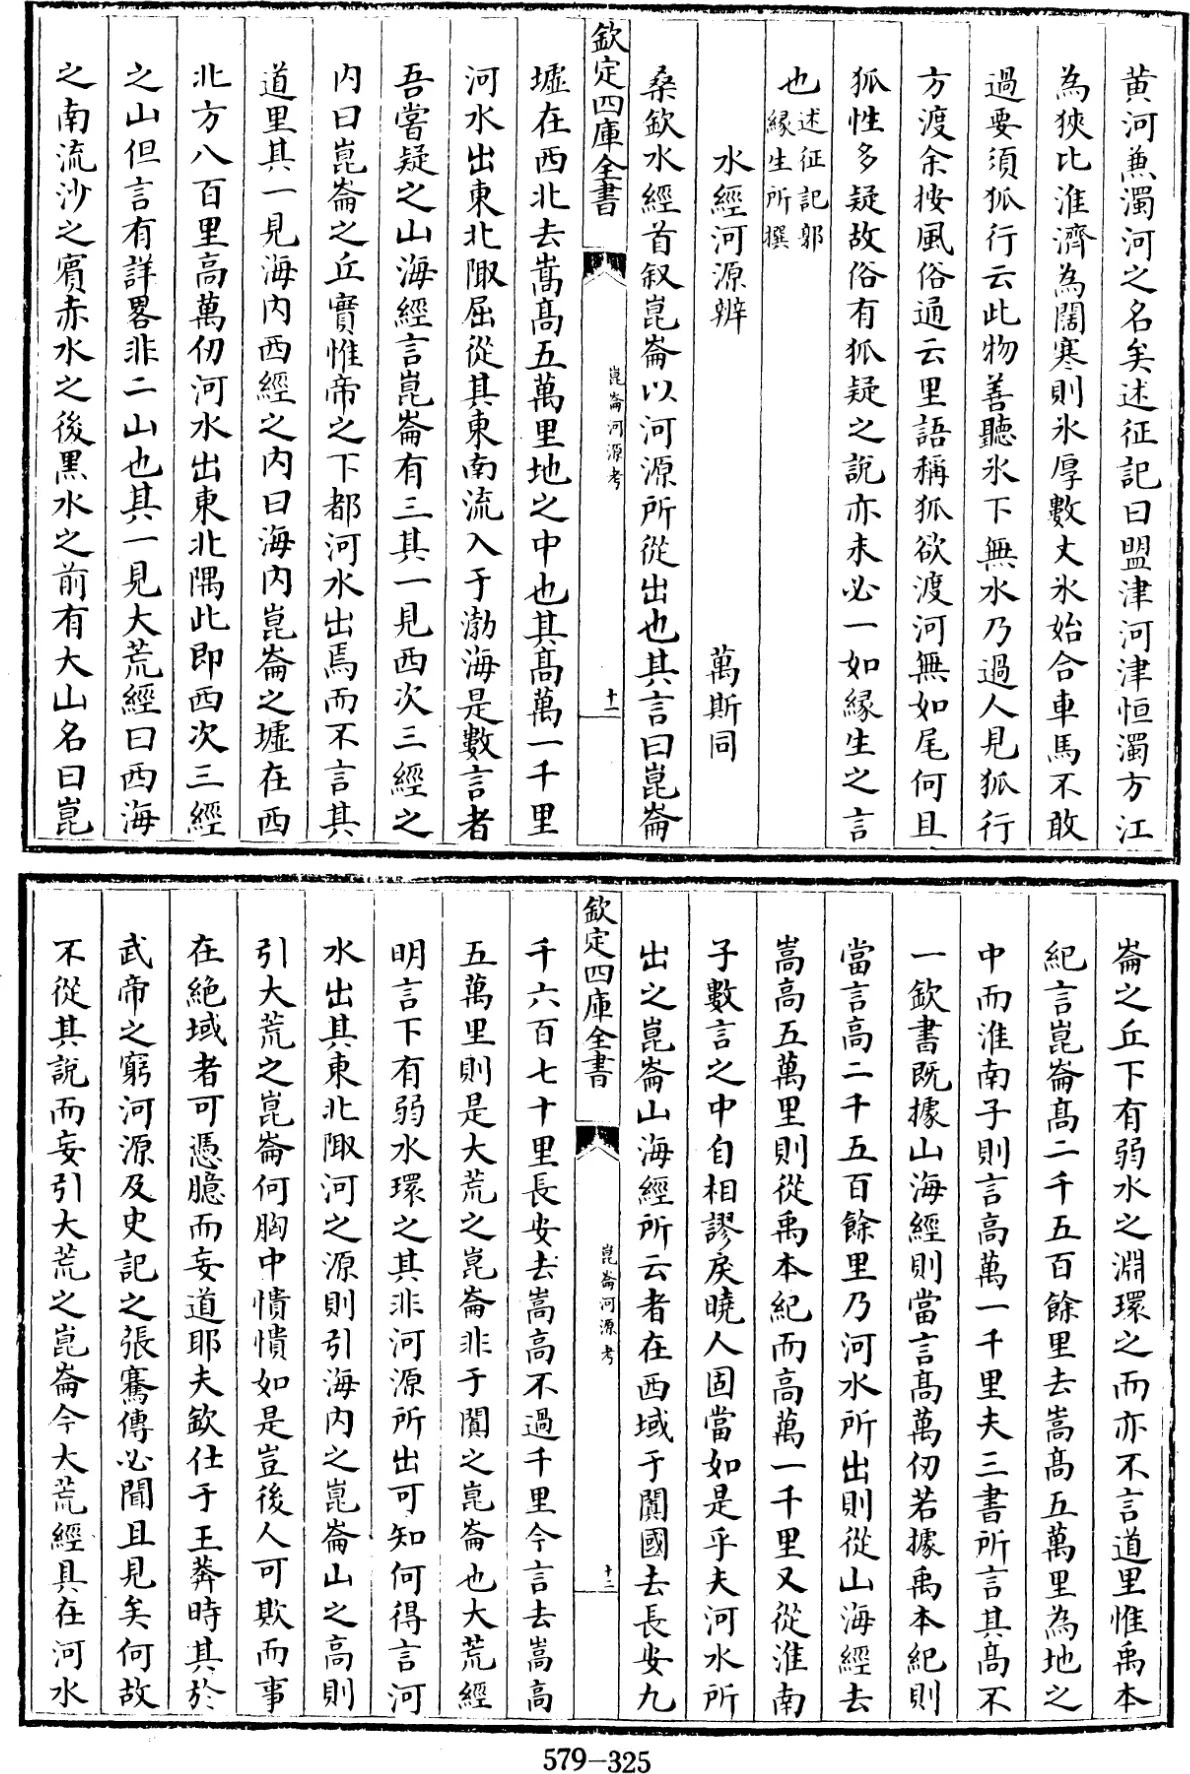 黄河兼濁河之名矣述征記曰盟津河津恒濁方江
為狹比淮濟為闊寒則氷厚數丈氷始合車馬不敢
過要須狐行云此物善聽氷下無水乃過人見狐行
方渡余按風俗通云里語稱狐欲渡河無如尾何且
狐性多疑故俗有狐疑之說亦未必一如緣生之言
也述征記郭
緣生所撰
水經河源辨
萬斯同
桑欽水經首叙崑崙以河源所從出也其言曰崑崙
欽定四庫全書
崑崙河源考
十二
墟在西北去嵩髙五萬里地之中也其髙萬一千里
河水出東北陬屈從其東南流入于渤海是數言者
吾嘗疑之山海經言崑崙有三其一見西次三經之
内曰崑崙之丘實惟帝之下都河水出焉而不言其
道里其一見海内西經之内曰海内崑崙之墟在西
北方八百里高萬仞河水出東北隅此即西次三經
之山但言有詳畧非二山也其一見大荒經曰西海
之南流沙之濱赤水之後黑水之前有大山名曰崑
崙之丘下有弱水之淵環之而亦不言道里惟禹本
紀言崑崙髙二千五百餘里去嵩髙五萬里為地之
中而淮南子則言高萬一千里夫三書所言其髙不
一欽書既據山海經則當言髙萬仞若據禹本紀則
當言高二千五百餘里乃河水所出則從山海經去
嵩高五萬里則從禹本紀而高萬一千里又從淮南
子數言之中自相謬戾曉人固當如是乎夫河水所
出之崑崙山海經所云者在西域于闐國去長安九
欽定四庫全書
崑崙河源考
十三
千六百七十里長安去嵩高不過千里今言去嵩高
五萬里則是大荒之崑崙非于闐之崑崙也大荒經
明言下有弱水環之其非河源所出可知何得言河
水出其東北陬河之源則引海内之崑崙山之高則
引大荒之崑崙何胸中憒憒如是豈後人可欺而事
在絶域者可憑臆而妄道耶夫欽仕于王莽時其於
武帝之窮河源及史記之張騫傳必聞且見矣何故
不從其說而妄引大荒之崑崙今大荒經具在河水
579-325